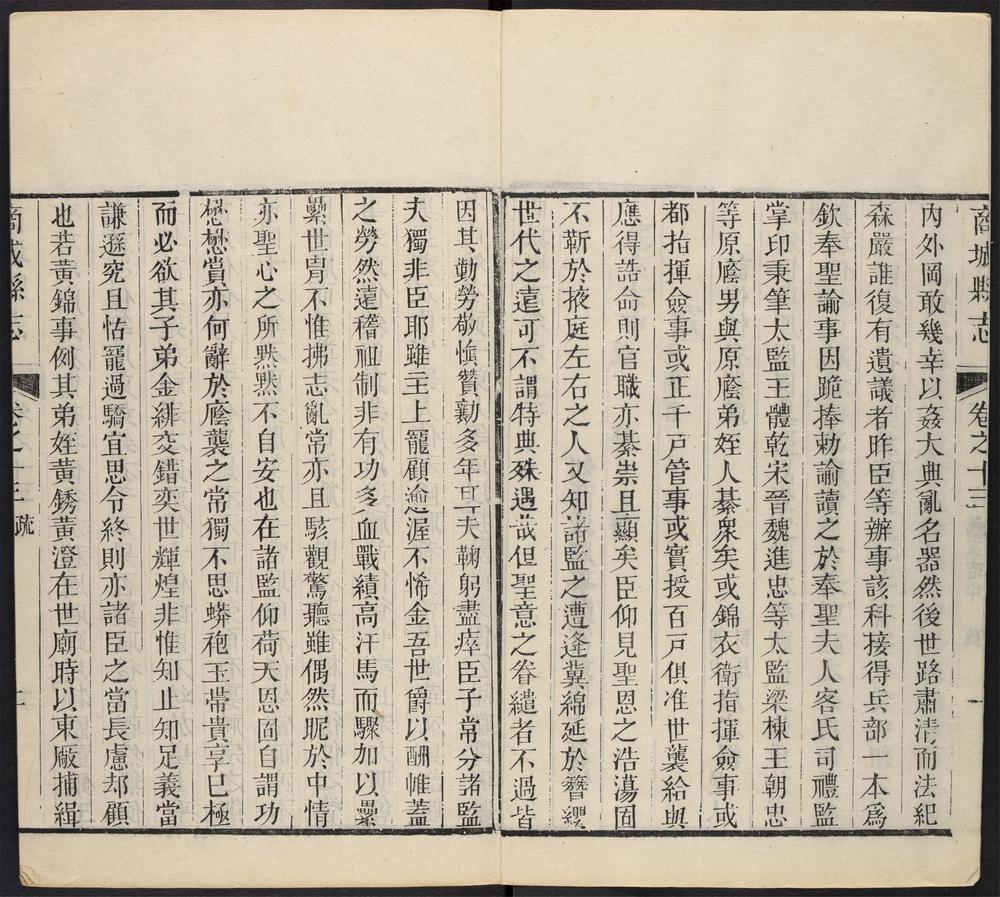 商城縣志
卷之十三
一
內外罔敢幾幸以姦大典亂名器然後世路肅清而法紀
森嚴誰復有遺議者昨臣等辦事該科接得兵部一本爲
欽奉聖諭事因跪捧勅諭讀之於奉聖夫人客氏司禮監
掌印秉筆太監王體乾宋晉魏進忠等太監梁棟王朝忠
等原廕男與原廕弟姪人綦衆矣或錦衣衛指揮僉事或
都指揮僉事或正千戸管事或實授百戸俱准世襲給與
應得誥命則官職亦綦崇且顯矣臣仰見聖恩之浩蕩固
不靳於掖庭左右之人又知諸監之遭逢冀綿延於簪纓
世代之遠可不謂特典殊遇哉但聖意之眷繾者不過皆
因其勤勞敬愼贊勷多年耳夫鞠躬盡瘁臣子常分諸監
夫獨非臣耶雖主上寵顧逾渥不惜金吾世爵以酬帷蓋
之勞然遠稽祖制非有功多血戰績高汗馬而驟加以纍
纍世胄不惟拂志亂常亦且駭觀驚聽雖偶然昵於中情
亦聖心之所默默不自安也在諸監仰荷天恩固自謂功
懋懋賞亦何辭於廕襲之常獨不思蟒袍玉帶貴享已極
而必欲其子弟金緋交錯奕世輝煌非惟知止知足義當
謙遜究且怙寵過驕宜思令終則亦諸臣之當長慮却顧
也若黃錦事例其弟姪黃銹黃澄在世廟時以東厰捕緝
商城縣志
卷之十三
疏
二